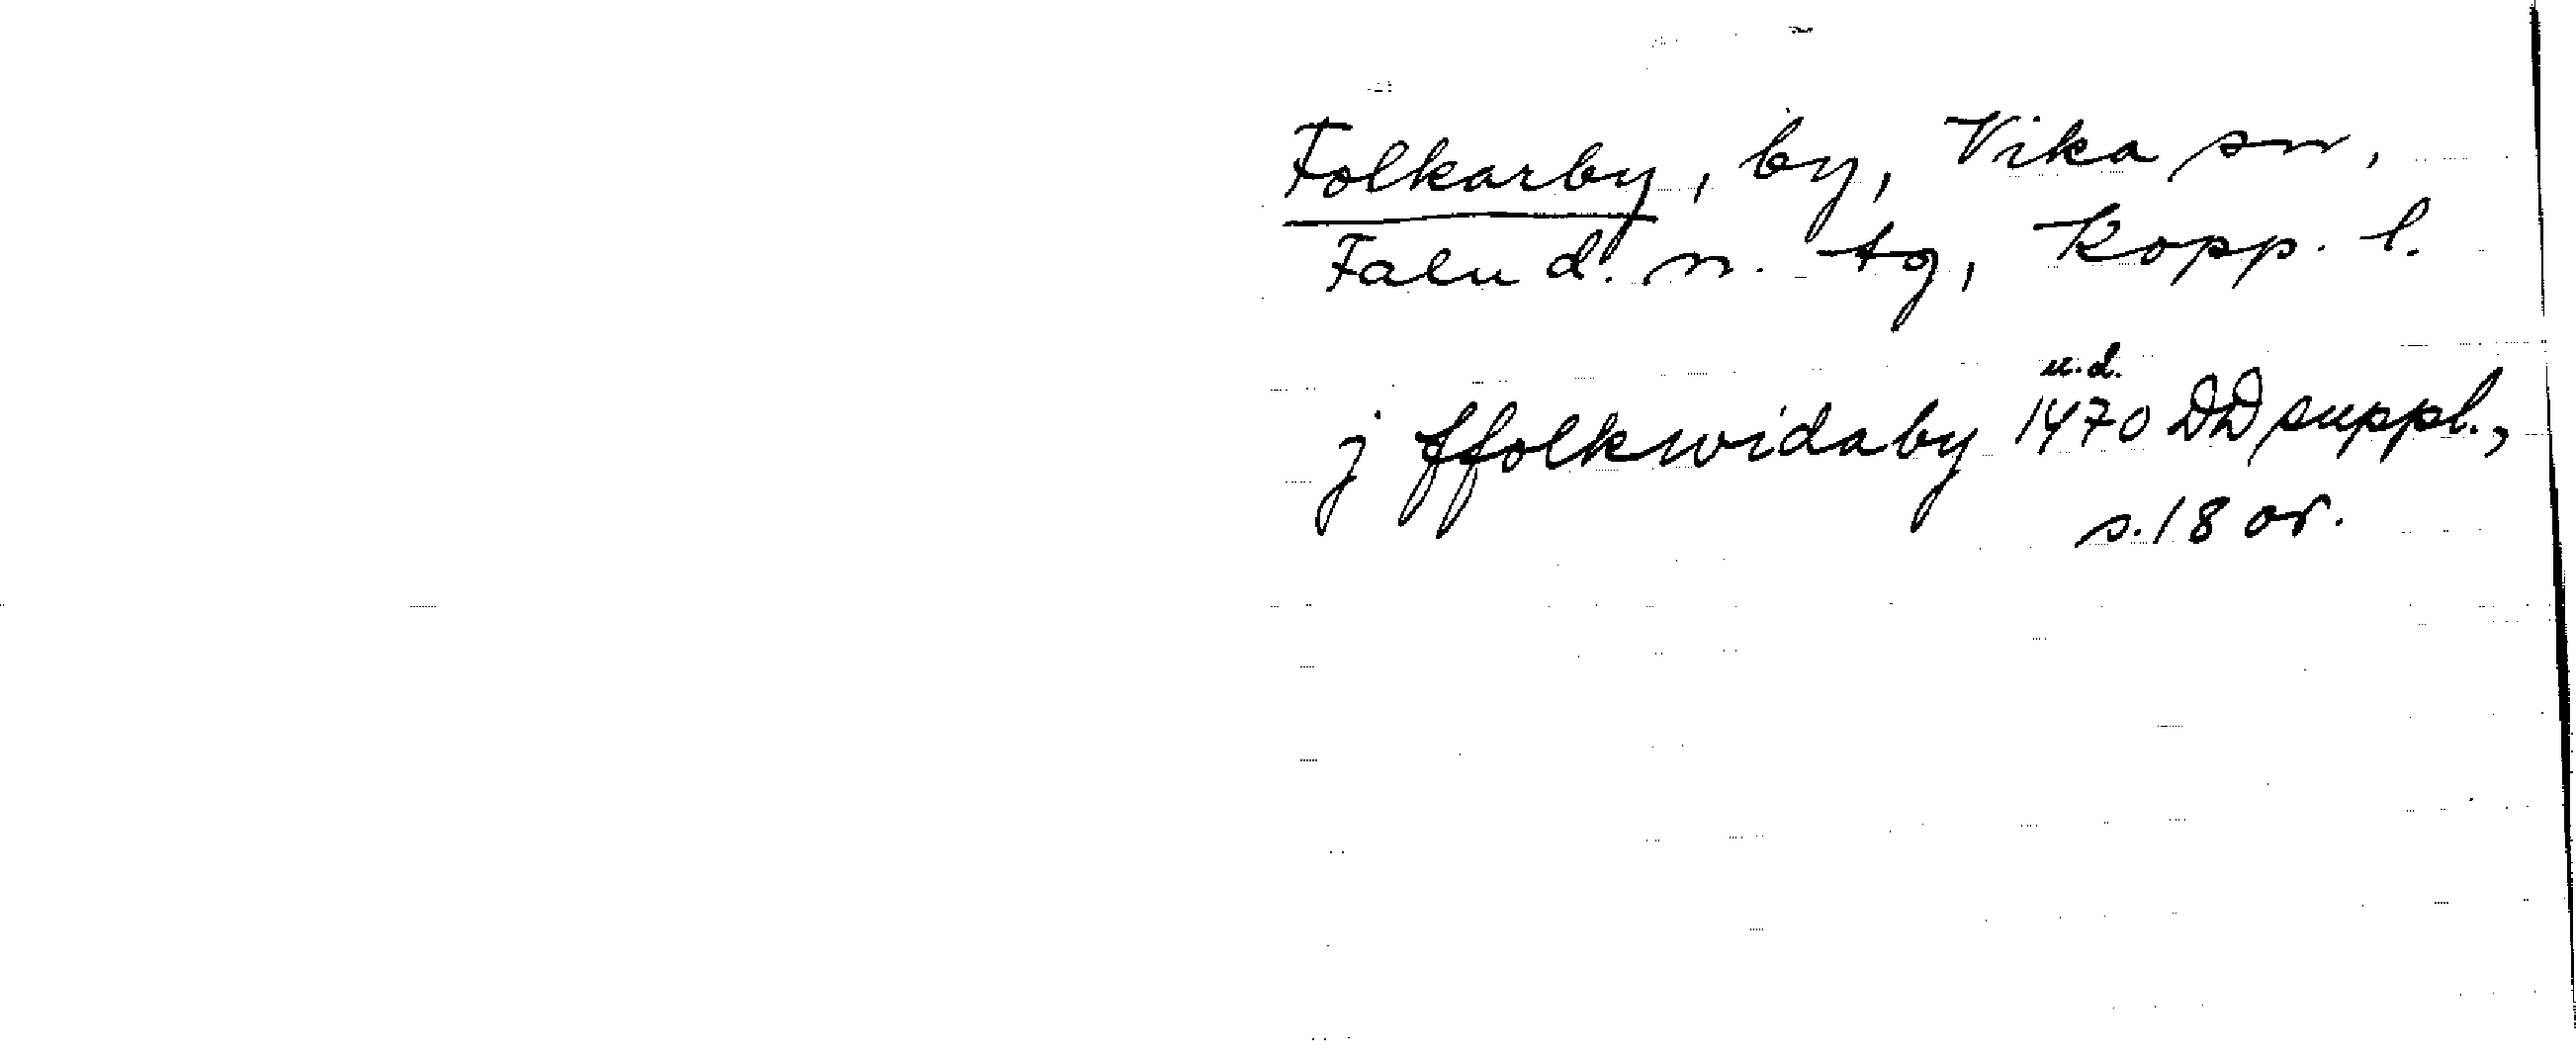 Folkarby, by, Vika sn,
Falu d. n. tg, Kopp. l.
u.d.
j ffolkwidaby 1470 DD suppl.,
s. 18 or.